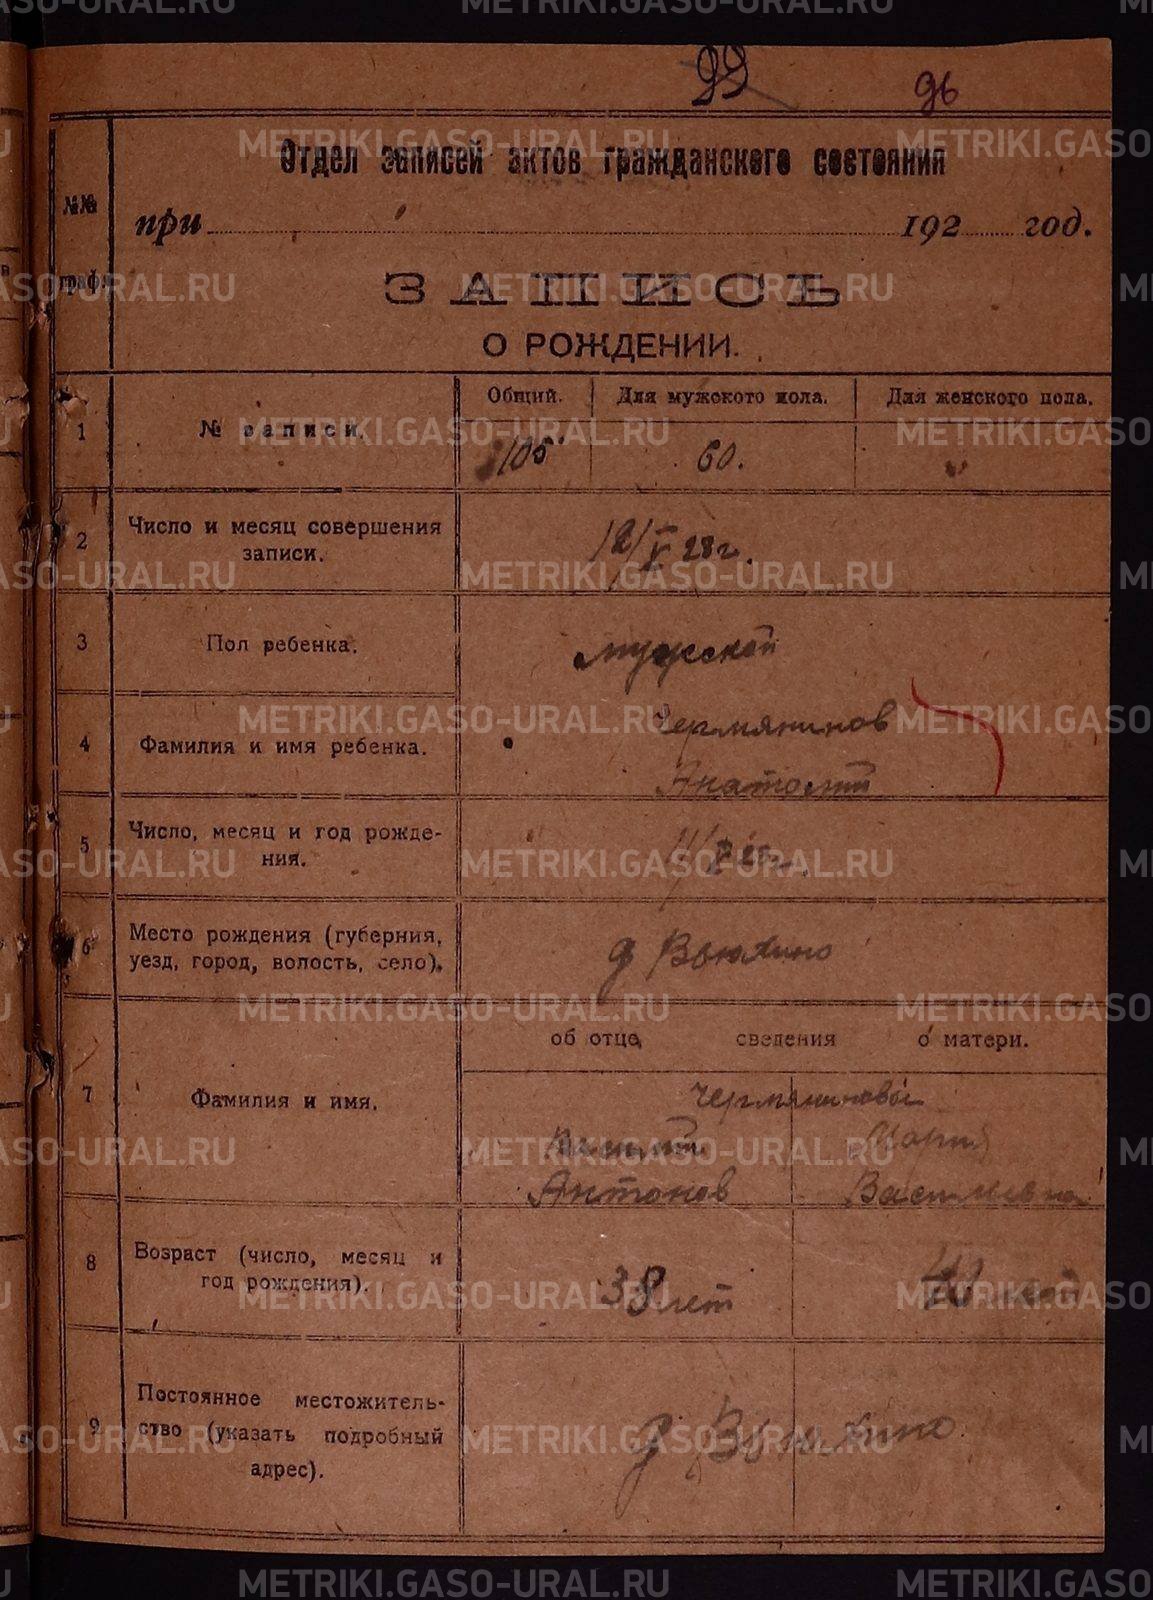 99 96
Отдел записей актов гражданского состояния
№№ граф.
при 192 год.
ЗАПИСЬ
О РОЖДЕНИИ.
1 № записи.
Общий. Для мужского пола. Для женского пола.
105 60.
2 Число и месяц совершения
записи.
12/V 28 г.
3 Пол ребенка.
мужской
4 Фамилия и имя ребенка.
Чермянинов
Анатолий
5 Число, месяц и год рожде-
ния.
6 Место рождения (губерния,
уезд, город, волость, село).
д Вьюхино
об отце, сведения о матери.
7 Фамилия и имя.
Чермяниновы
Василий Мария
Антонов Васильевна
8 Возраст (число, месяц и
год рождения).
38 лет 40 лет
9 Постоянное местожитель-
ство (указать подробный
адрес).
д. Вьюхино
METRIKI.GASO-URAL.RU